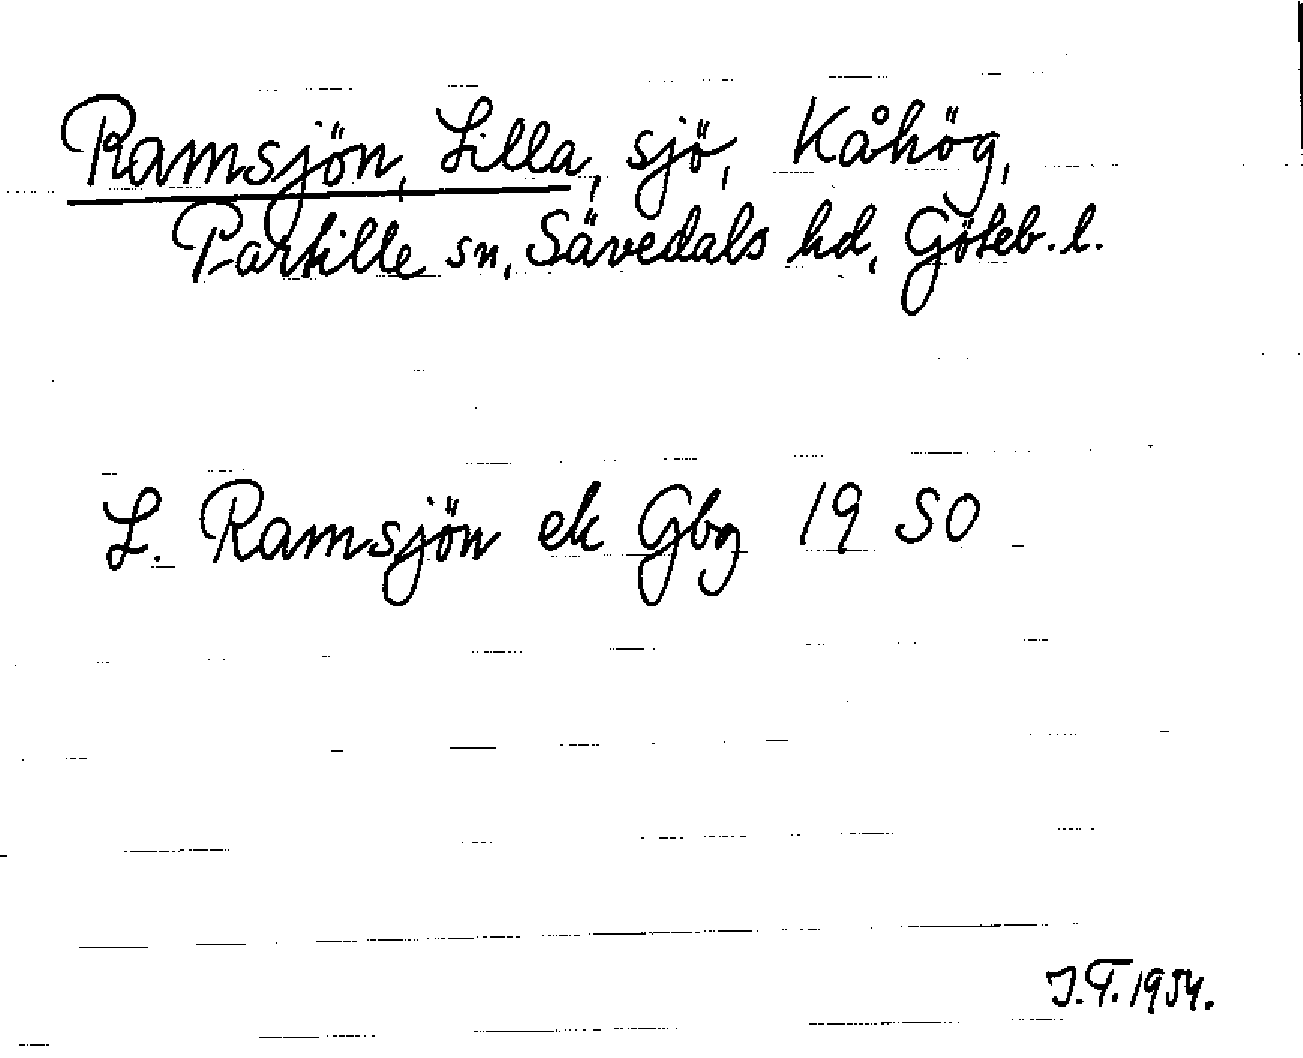 Ramsjön, Lilla, sjö, Kåhög,
Partille sn, Sävedals hd, Göteb. l.
L. Ramsjön ek Gbg 19 50
J.T. 1954.